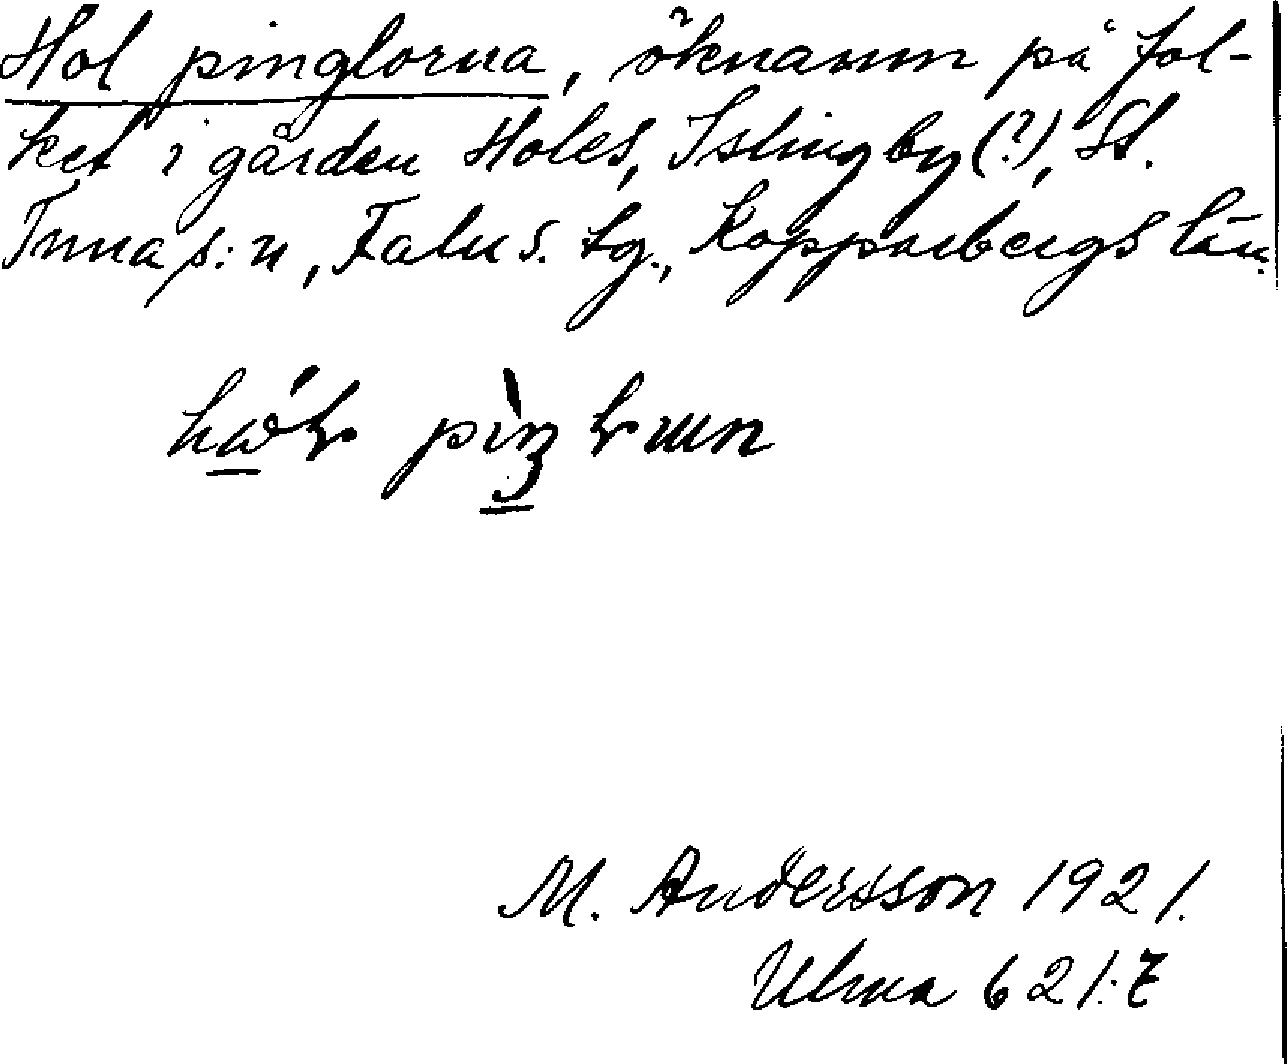 Hol pinglorna, öknamn på fol-
ket i gården Holes, Islingby(?), St.
Tuna s:n, Falu s. tg., Kopparbergs län.
M. Andersson 1921.
Ulma 621:7